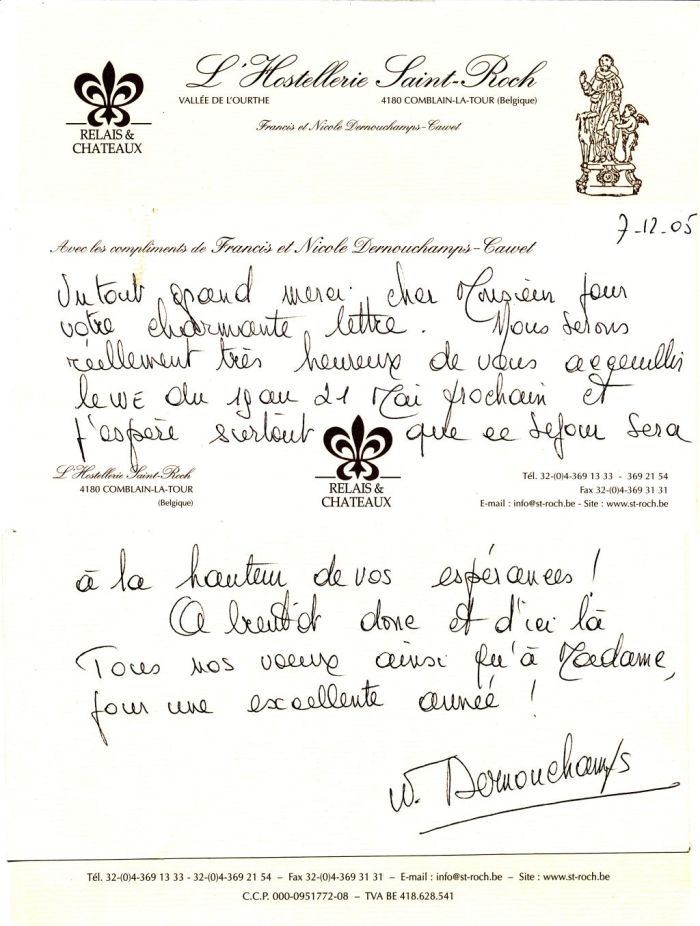 L'Hostellerie Saint-Roch
VALLÉE DE L'OURTHE 4180 COMBLAIN-LA-TOUR (Belgique)
RELAIS &
CHATEAUX
Francis et Nicole Dernouchamps-Cawet
7-12-05
Avec les compliments de Francis et Nicole Dernouchamps-Cawet
Un tout grand merci cher Monsieur pour
votre charmante lettre. Nous serons
réellement très heureux de vous accueillir
le WE du 19 au 21 Mai prochain et
j'espère surtout que ce séjour sera
L'Hostellerie Saint-Roch
4180 COMBLAIN-LA-TOUR
(Belgique)
RELAIS &
CHATEAUX
Tél. 32-(0)4-369 13 33 - 369 21 54
Fax 32-(0)4-369 31 31
E-mail : info@st-roch.be - Site : www.st-roch.be
à la hauteur de vos espérances !
A bientôt donc et d'ici là
Tous nos voeux ainsi qu'à Madame,
pour une excellente année !
Dernouchamps
Tél. 32-(0)4-369 13 33 - 32-(0)4-369 21 54 – Fax 32-(0)4-369 31 31 – E-mail : info@st-roch.be – Site : www.st-roch.be
C.C.P. 000-0951772-08 – TVA BE 418.628.541